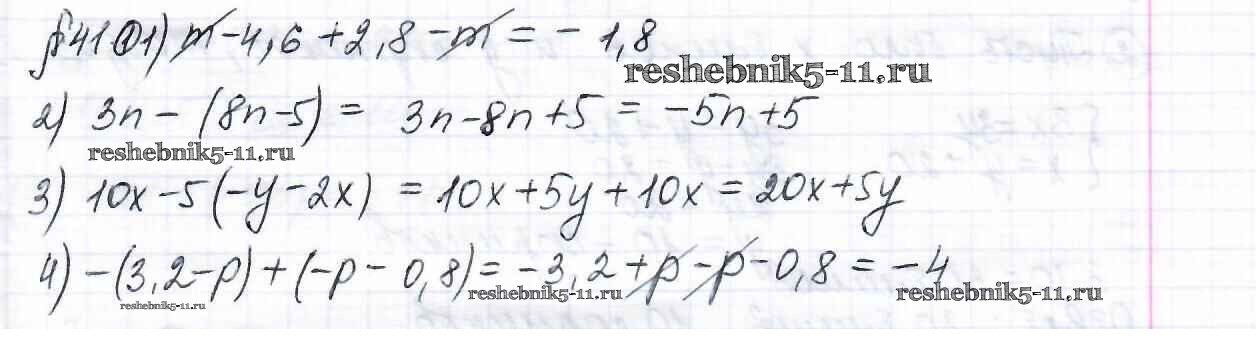 № 411 1) m - 4,6 + 2,8 - m = - 1,8
reshebnik5-11.ru
2) 3n - (8n-5) = 3n-8n+5 = -5n+5
reshebnik5-11.ru
3) 10x-5(-y-2x) = 10x+5y+10x = 20x+5y
4) -(3,2-p)+(-p-0,8) = -3,2+p-p-0,8 = -4
reshebnik5-11.ru reshebnik5-11.ru reshebnik5-11.ru